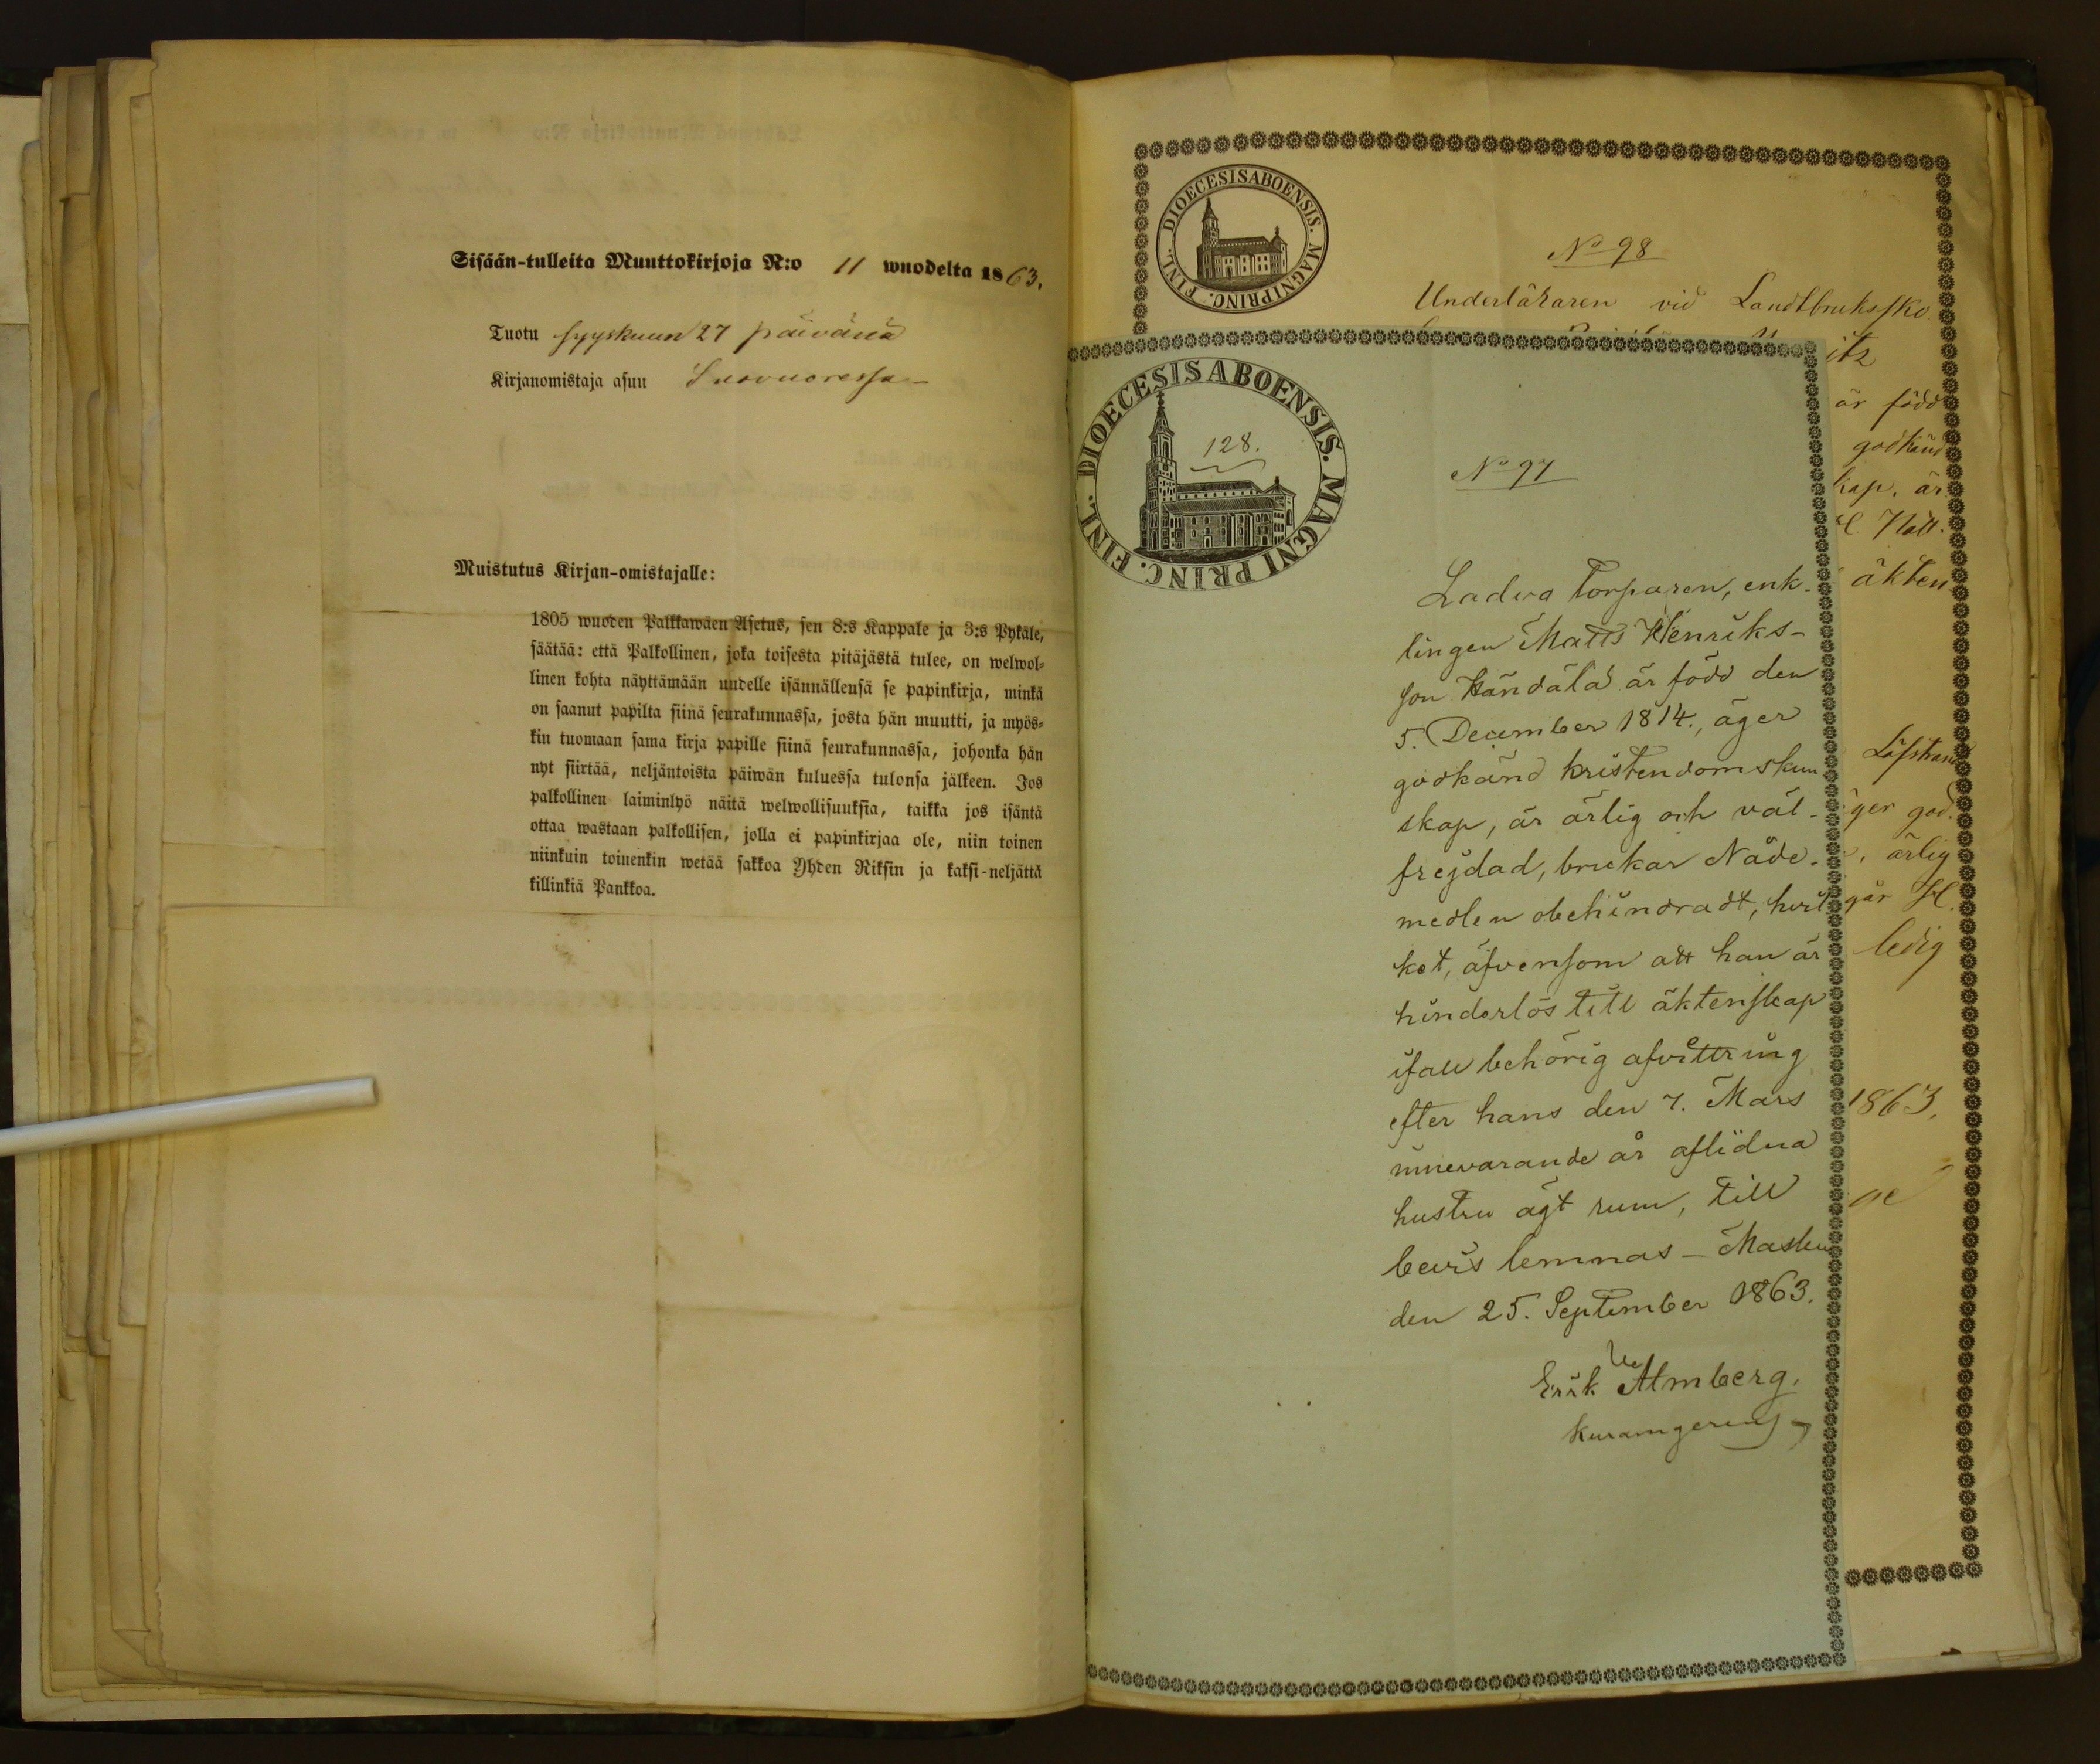 Sisään-tulleita Muuttokirjoja N:o 11 wuodelta 1863.
Tuotu syyskuun 27 päivänä
Kirjanomistaja asuu Suovuoressa
Muistutus Kirjan-omistajalle:
1805 wuoden Palkkawäen Asetus, sen 8:s Kappale ja 3:s Pykäle,
säätää: että Palkollinen, joka toisesta pitäjästä tulee, on welwol-
linen kohta näyttämään uudelle isännällensä se papinkirja, minkä
on saanut papilta siinä seurakunnassa, josta hän muutti, ja myös-
kin tuomaan sama kirja papille siinä seurakunnassa, johonka hän
nyt siirtää, neljäntoista päiwän kuluessa tulonsa jälkeen. Jos
palkollinen laiminlyö näitä welwollisuuksia, taikka jos isäntä
ottaa wastaan palkollisen, jolla ei papinkirjaa ole, niin toinen
niinkuin toinenkin wetää sakkoa Yhden Riksin ja kaksi-neljättä
killinkiä Pankkoa.
DIOECESIS ABOENSIS. MAGNI PRINC. FINL.
No 98
Underläraren vid Landtbrukssko
itz
är född
godkänd
kap, är
Natt.
äkten
Löfstrand
ger god.
ärlig
går H.
ledig
1863.
DIOECESIS ABOENSIS. MAGNI PRINC. FINL.
128.
No 97
Ladva Torparen, enk-
lingen Matts Henriks-
son Händälä är född den
5. December 1814., äger
godkänd kristendomskun
skap, är ärlig och väl-
frejdad, brukar Nåde-
medlen obehindradt, hvil
ket, äfvensom att han är
hinderlös till äktenskap
ifall behörig afvittring
efter hans den 7. Mars
innevarande år aflidna
hustru ägt rum, till
bevis lemnas – Masku
den 25. September 1863.
Erik Almberg.